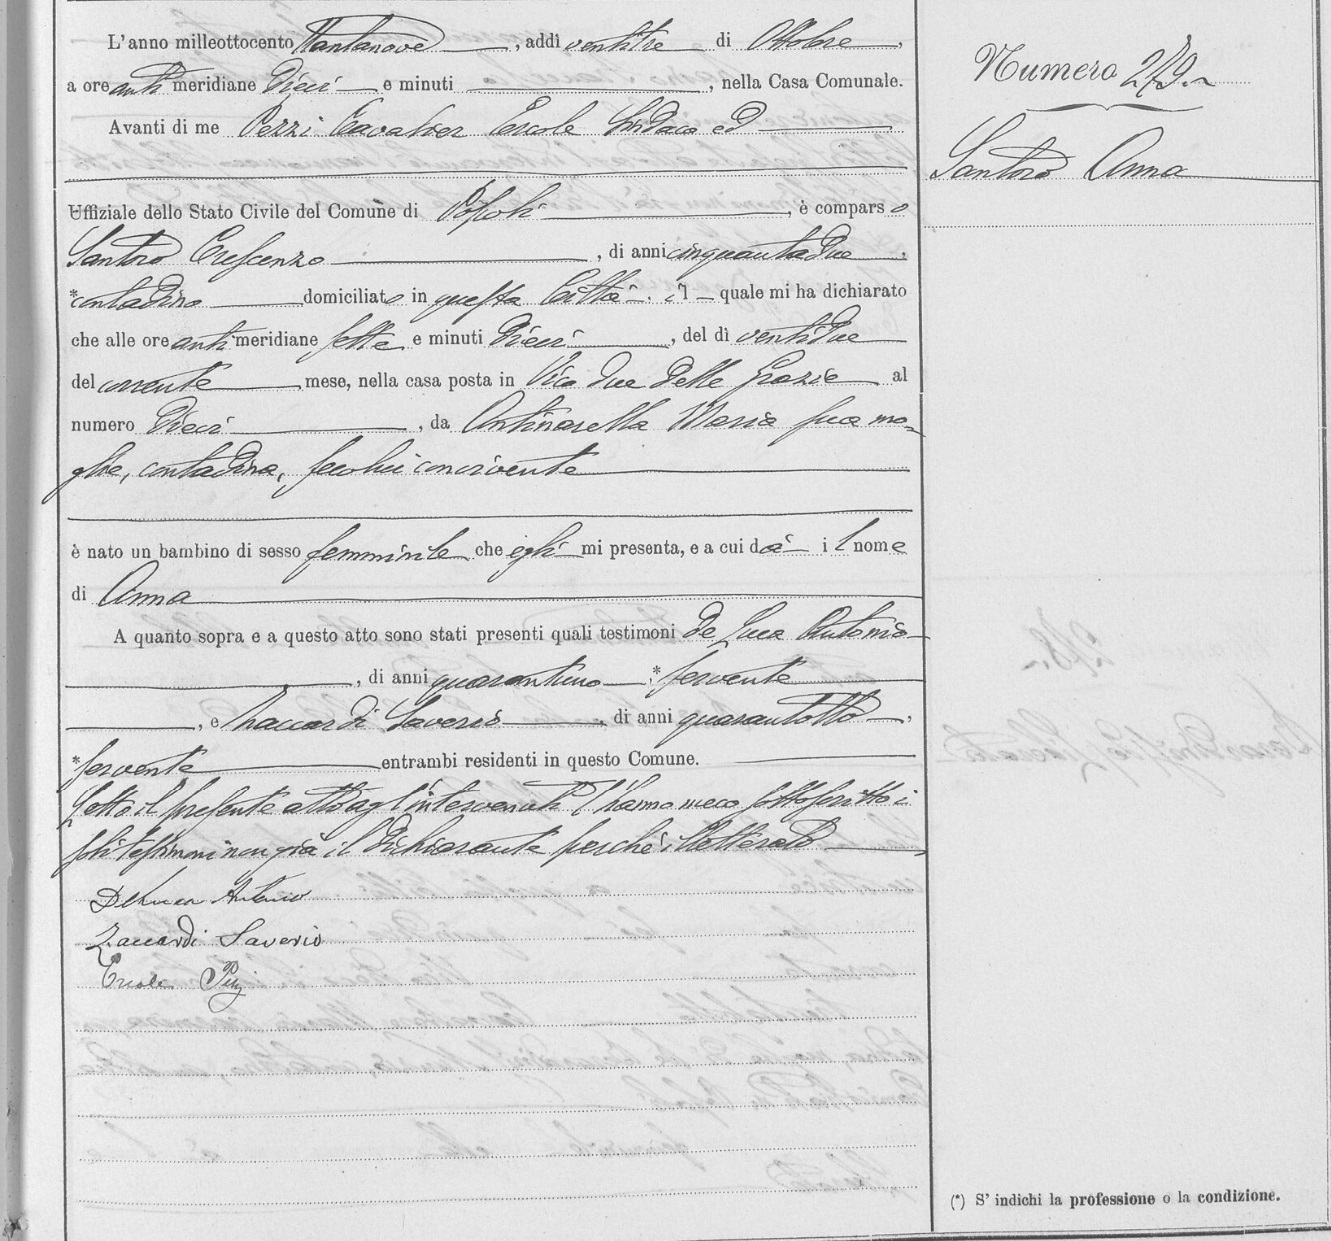 L'anno milleottocento ttantanove, addì ventitre di Ottobre,
a ore anti meridiane dieci e minuti, nella Casa Comunale.
Avanti di me Pezzi Cavalier Ercole Sindaco ed
Uffiziale dello Stato Civile del Comune di Popoli, è comparso
Santoro Crescenzo, di anni cinquantadue,
*contadino domiciliato in questa Città, il quale mi ha dichiarato
che alle ore anti meridiane sette e minuti dieci, del dì ventidue
del corrente mese, nella casa posta in Vico due delle Grazie al
numero dieci, da Antinarella Maria sua mo-
glie, contadina, seco lui convivente
è nato un bambino di sesso femminile che egli mi presenta, e a cui dà il nome
di Anna
A quanto sopra e a questo atto sono stati presenti quali testimoni de Luca Antonio
, di anni quarantuno, *servente
, e Zaccardi Saverio, di anni quarantotto,
*servente entrambi residenti in questo Comune.
Letto il presente atto agl'intervenuti l'hanno meco sottoscritto i
soli testimoni non già il dichiarante perché illetterato
De Luca Antonio
Zaccardi Saverio
Ercole
Numero 279.
Santoro Anna
(*) S' indichi la professione o la condizione.